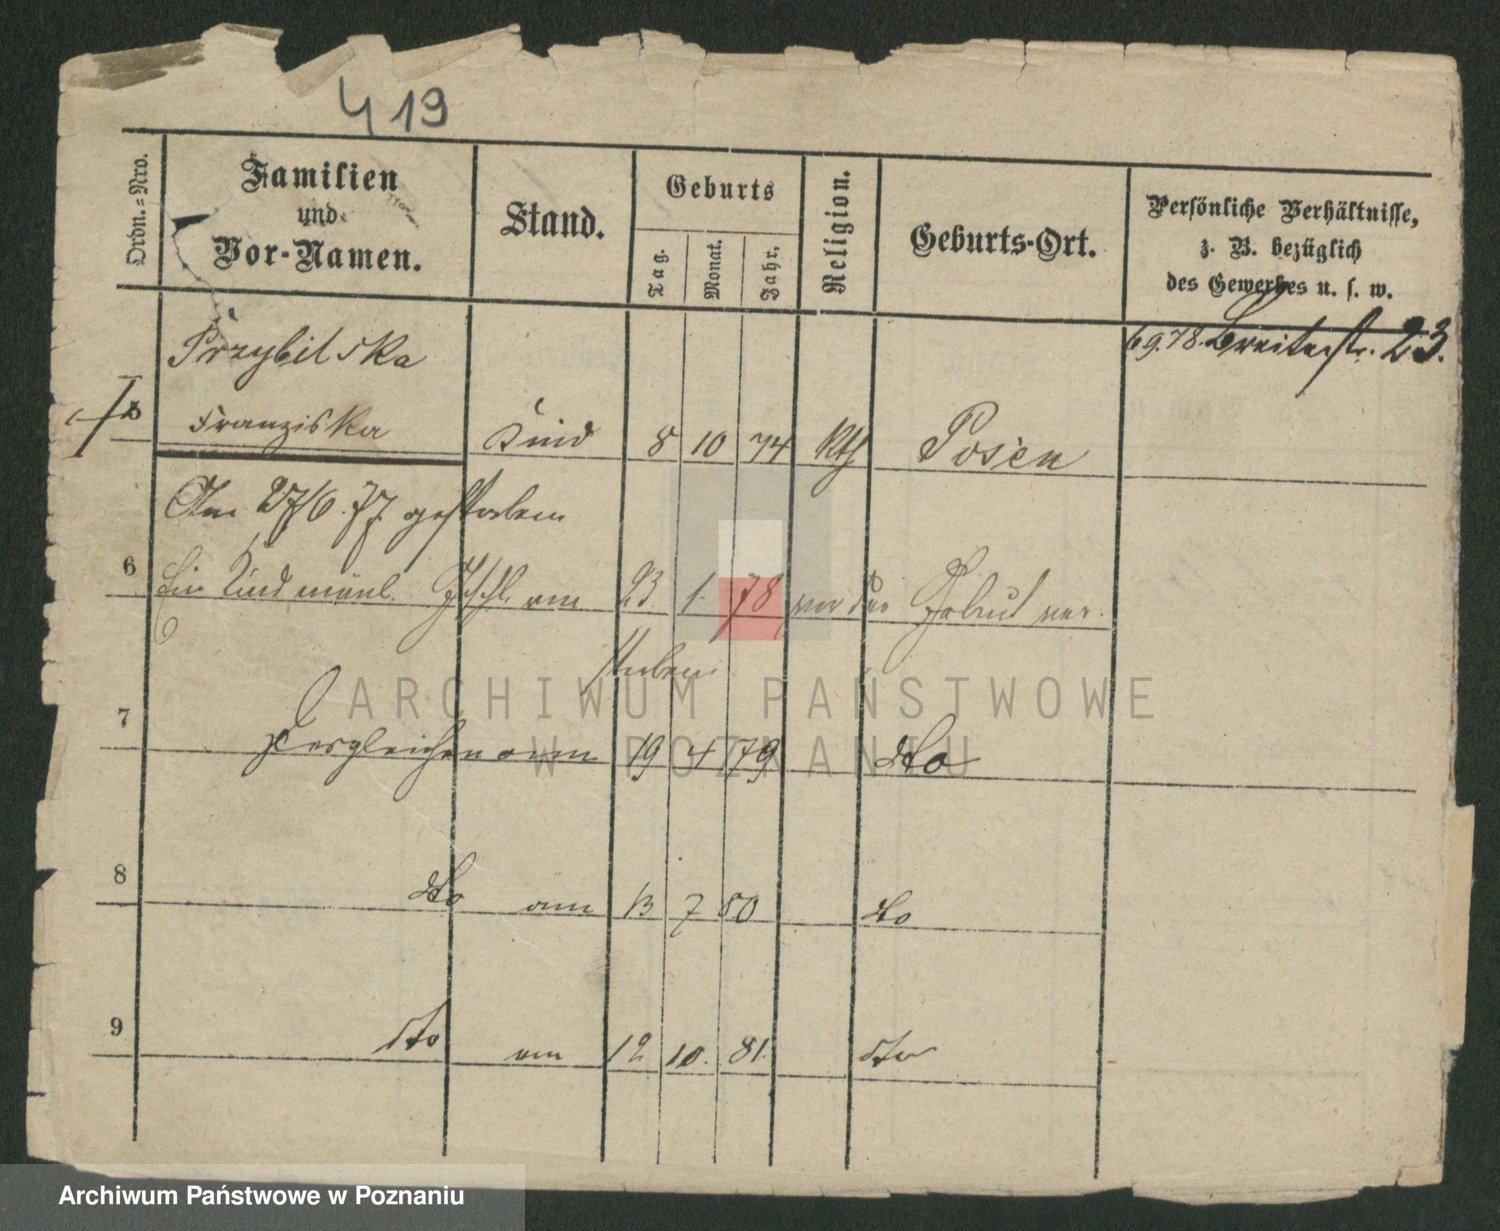 419
Ordn.=Nro.
Familien
und
Vor-Namen.
Stand.
Geburts
Tag.
Monat.
Jahr.
Religion.
Geburts-Ort.
Persönliche Verhältnisse,
z. B. bezüglich
des Gewerbes u. s. w.
6 9.78. Breitestr. 23.
Przybilska
5 Franziska Kind 8 10 74 kth Posen
Am 27/6. 77. gestorben
6 Ein Kind männl. Geschl. am 23 1. 78 vor der Geburt ver.
storben
7 Desgleichen am 19 4 79 dto
8 dto am 13 7 80 dto
9 dto am 12 10. 81. dto
ARCHIWUM PAŃSTWOWE
W POZNANIU
Archiwum Państwowe w Poznaniu